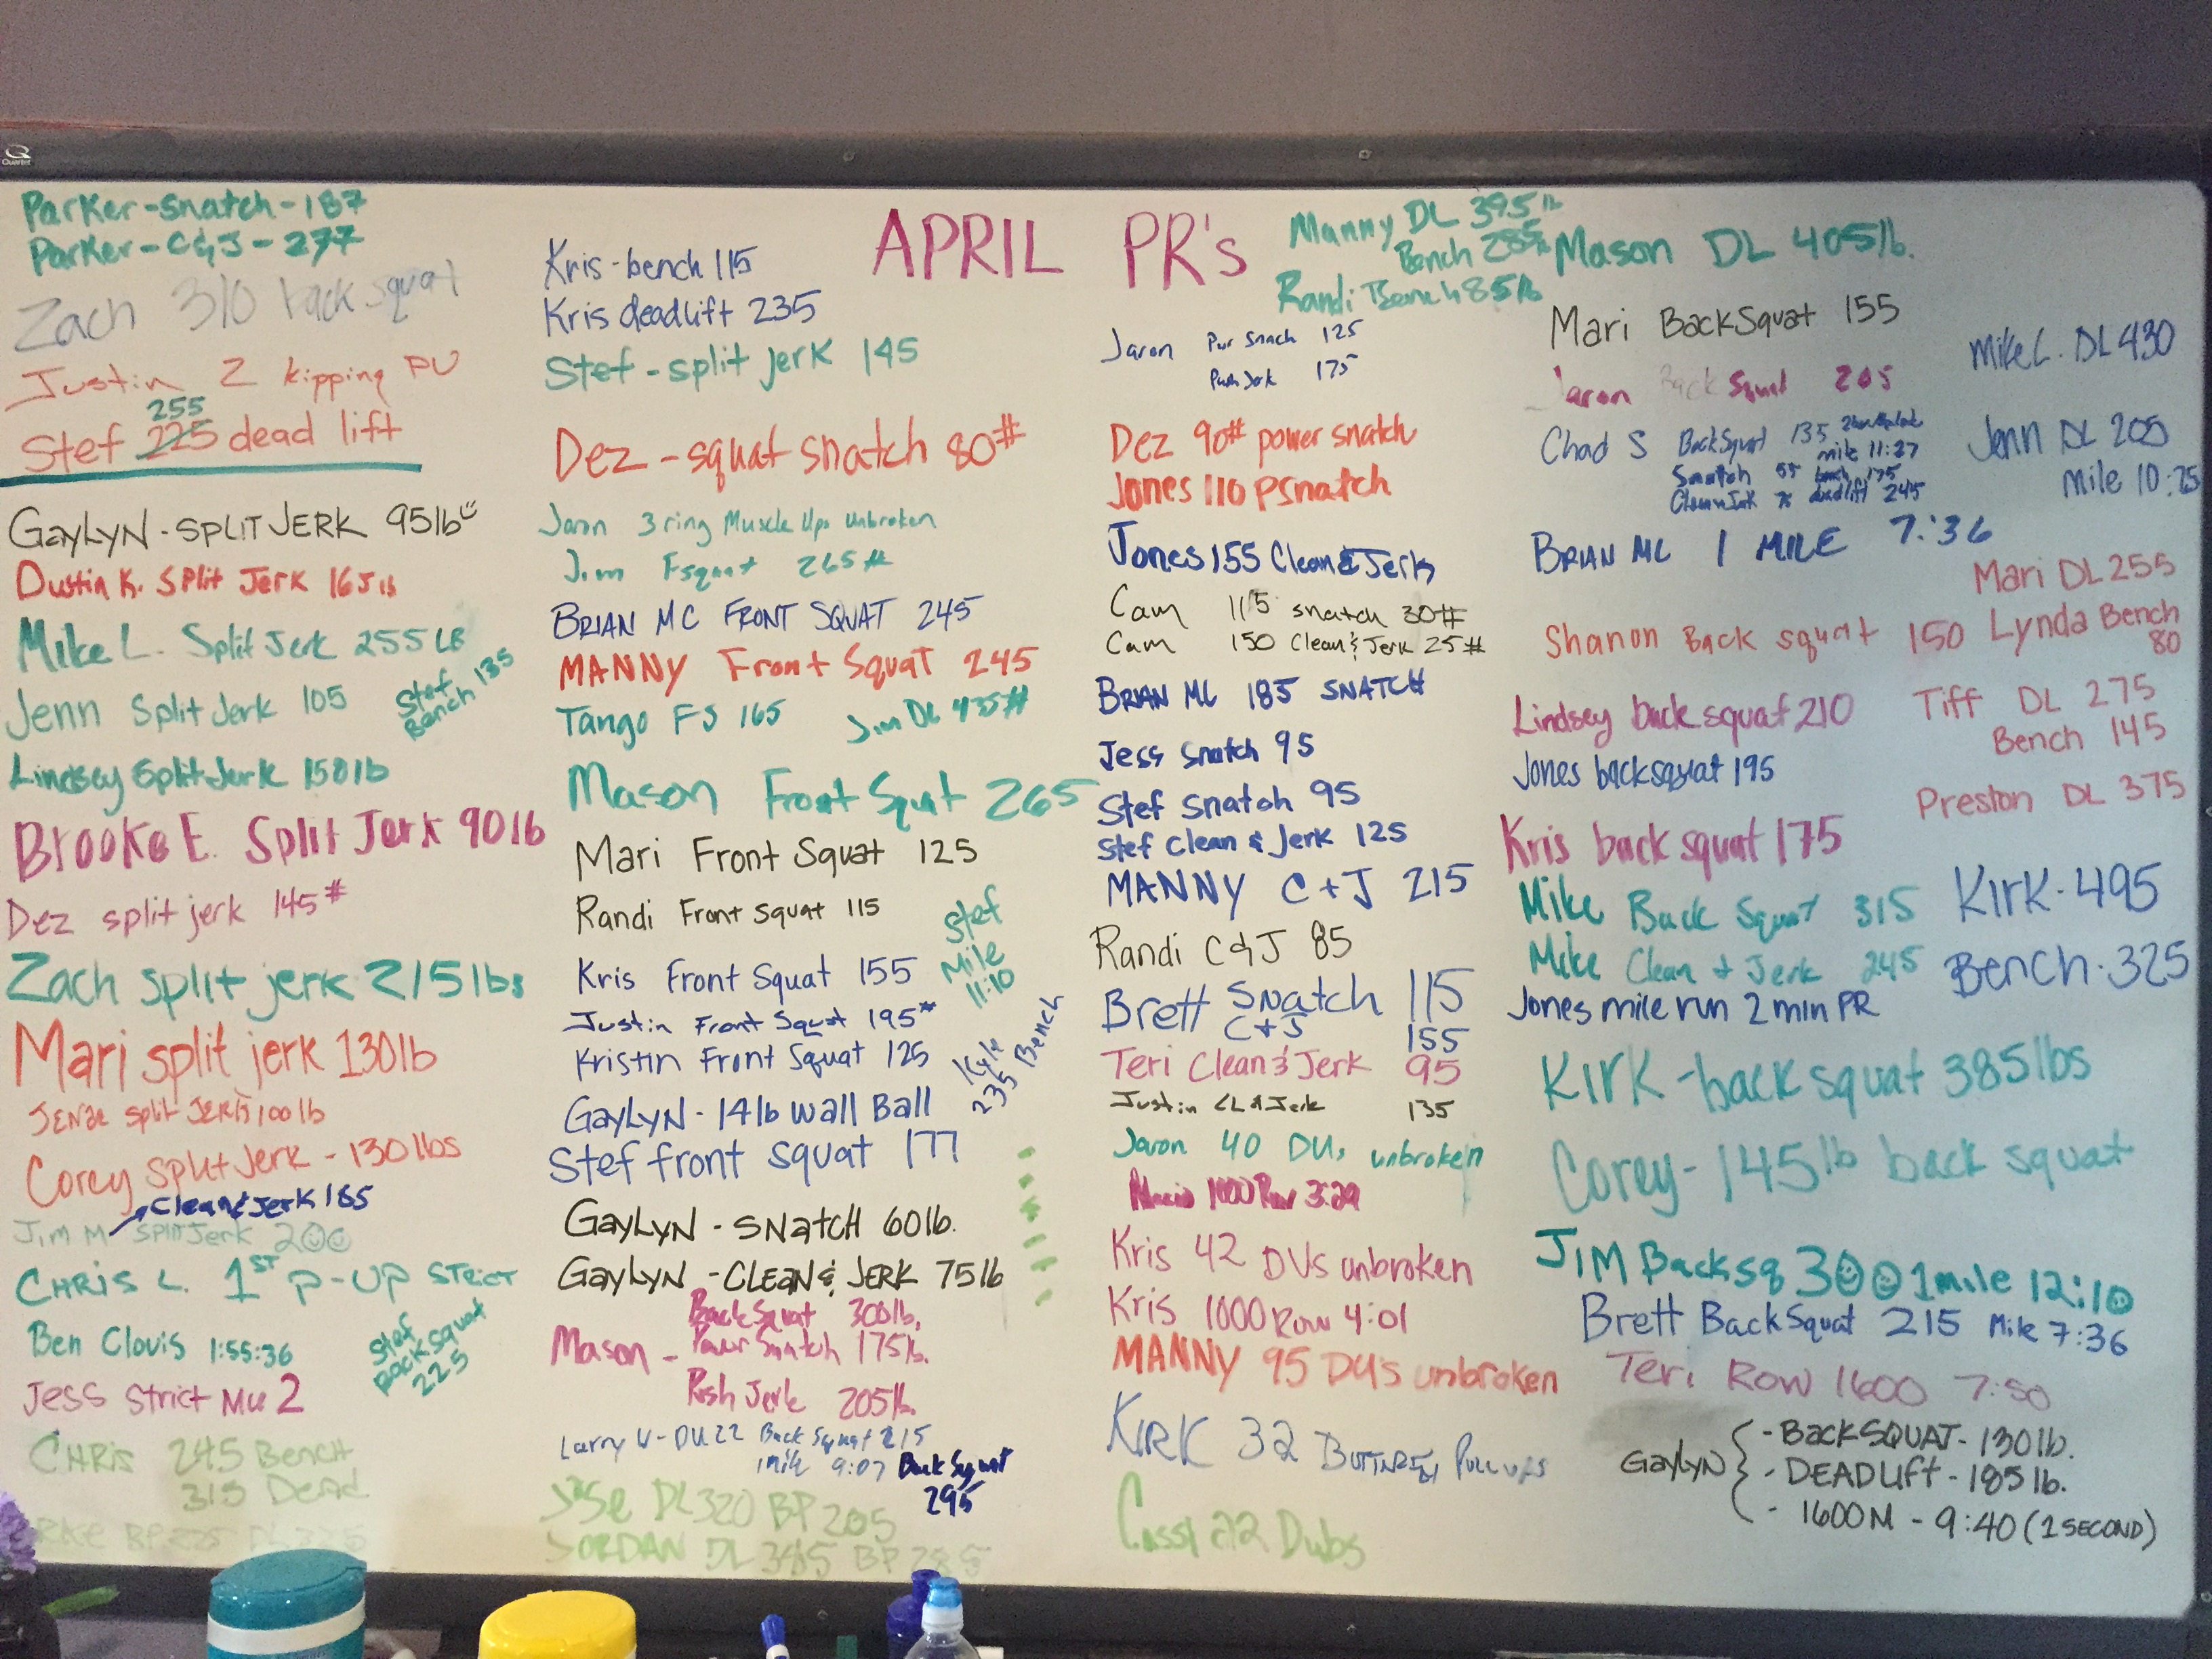 Quartet
APRIL PR's
Parker-snatch-187
Parker-C&J-277
Zach 310 back squat
Justin 2 kipping PU
255
Stef 225 dead lift
GayLYN-SPLIT JERK 95lb
Dustin K. Split Jerk 165 lb
Mike L. Split Jerk 255 LB
Jenn Split Jerk 105
Stef Bench 135
Lindsey Split Jerk 150lb
Brooke E. Split Jerk 90lb
Dez split jerk 145#
Zach split jerk 215lbs
Mari split jerk 130lb
split JERK 100lb
Corey Split Jerk - 130lbs
Clean & Jerk 185
Jim M Split Jerk 200
CHRIS L. 1ST P-UP STRICT
Ben Clovis 1:55:36
Stef
back squat
225
Jess Strict Mu 2
CHRis 245 Bench
315 Dead
Kris-bench 115
Kris deadlift 235
Stef-split jerk 145
Dez-squat snatch 80#
Jaron 3 ring Muscle Ups unbroken
Jim Fsquat 265#
BRIAN MC FRONT SQUAT 245
MANNY Front Squat 245
Tango FS 165
Jim DL 435#
Mason Front Squat 265
Mari Front Squat 125
Randi Front Squat 115
Stef
Mile
11:10
Kris Front Squat 155
Justin Front Squat 195#
Kristin Front Squat 125
Kyle
235 Bench
GayLYN-14lb Wall Ball
Stef front squat 177
GayLYN-SNatCH 60lb.
GayLYN-CLEaN & JERK 75lb
Back Squat 300lb.
Mason - Power Snatch 175lb.
Push Jerk 205lb.
Larry W-DU 22 Back Squat 215
1 mile 9:07 Back Squat
295
DL 320 BP 205
JORDAN DL 385 BP 285
Manny DL 395lb
Bench 285
Randi Bench 85lb
Jaron Pwr Snach 125
Push Jerk 175
Dez 90# power snatch
Jones 110 Psnatch
Jones 155 Clean & Jerk
Cam 115 snatch 30#
Cam 150 Clean & Jerk 25#
BRIAN MC 185 SNATCH
Jess Snatch 95
Stef Snatch 95
Stef Clean & Jerk 125
MANNY C+J 215
Randi C&J 85
Brett Snatch 115
C+J 155
Teri Clean & Jerk 95
Justin CL & Jerk 135
Jaron 40 DUs unbroken
1000 Row 3:29
Kris 42 DUs unbroken
Kris 1000 Row 4:01
MANNY 95 DU's unbroken
KIRK 32 Butterfly Pull ups
22 Dubs
Mason DL 405lb.
Mari BackSquat 155
Mike L. DL 430
Jaron Back Squat 205
Chad S BackSquat 135
mile 11:27
Snatch 55 bench 175
Clean Jerk 75 deadlift 245
Jenn DL 205
Mile 10:25
BRIAN MC 1 MILE 7:36
Mari DL 255
Shanon Back squat 150
Lynda Bench
80
Lindsey back squat 210
Tiff DL 275
Bench 145
Jones backsquat 195
Preston DL 375
Kris back squat 175
Mike Back Squat 315
Kirk-495
Mike Clean & Jerk 245
Bench-325
Jones mile run 2 min PR
KIRK-back squat 385lbs
Corey-145lb back squat
JIM Backsq 300 1 mile 12:10
Brett BackSquat 215 Mile 7:36
Teri Row 1600 7:50
GayLYN
-BackSQUAT-130lb.
-DEADLift-185lb.
- 1600M - 9:40 (2 SECOND)